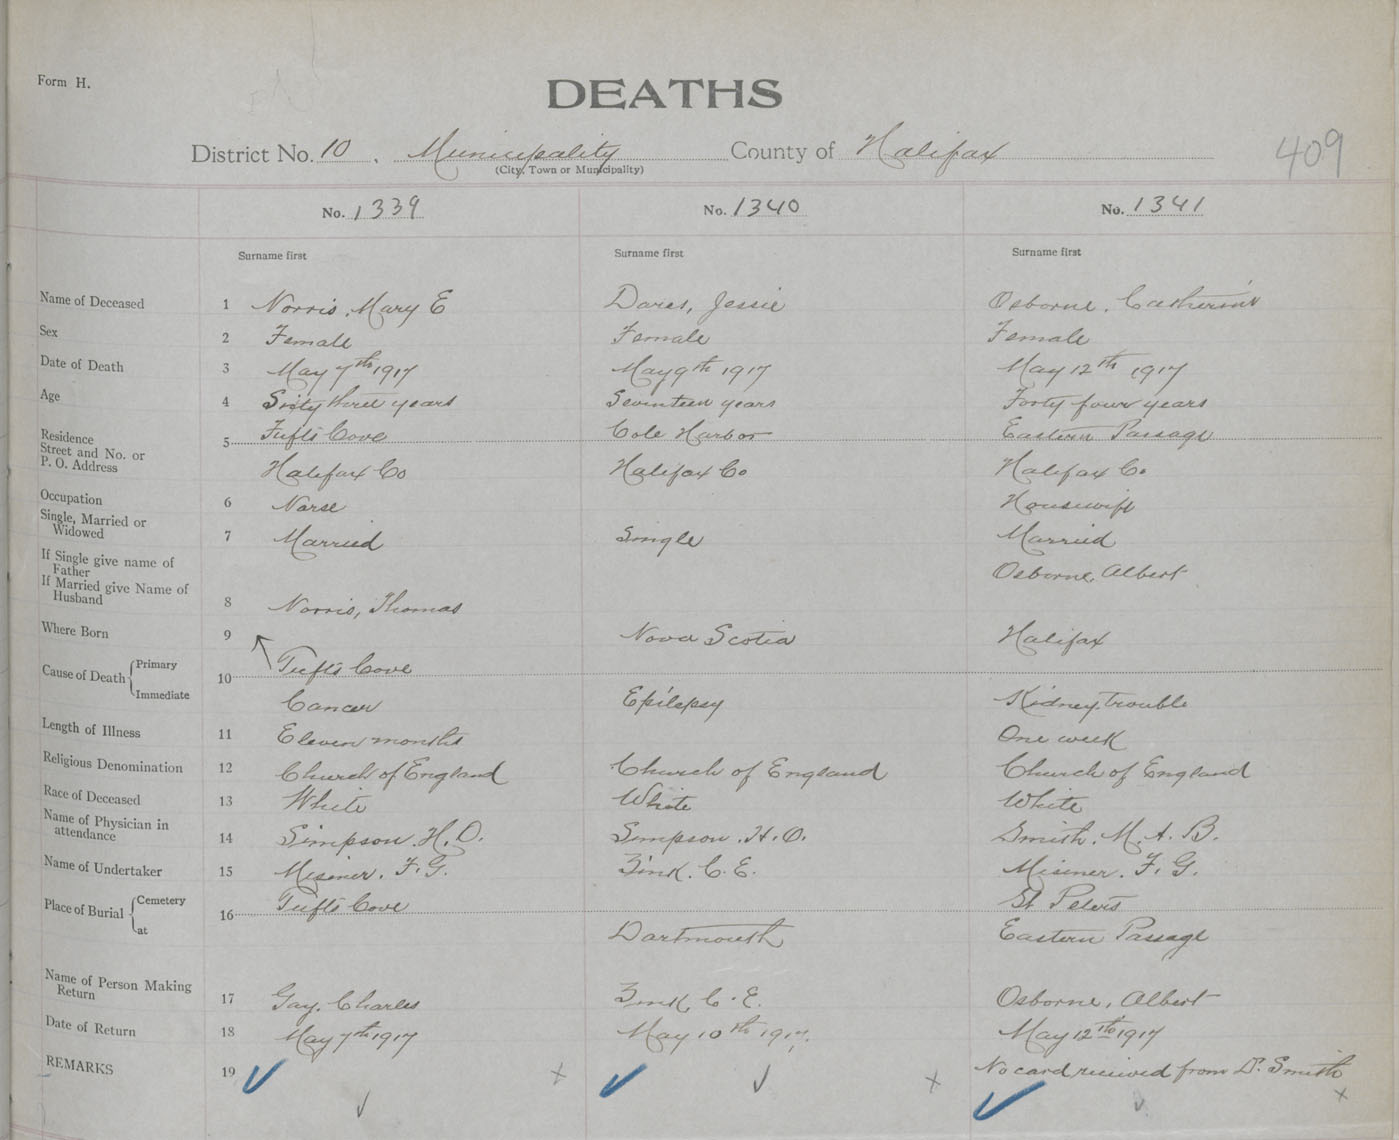 Form H.
DEATHS
District No. 10 , Municipality County of Halifax
409
(City, Town or Municipality)
No. 1339 No. 1340 No. 1341
Surname first Surname first Surname first
Name of Deceased 1 Norris, Mary E Dares, Jessie Osborne, Catherine
Sex 2 Female Female Female
Date of Death 3 May 7th 1917 May 9th 1917 May 12th 1917
Age 4 Sixty three years Seventeen years Forty four years
Residence 5 Tufts Cove Cole Harbor Eastern Passage
Street and No. or
P. O. Address Halifax Co Halifax Co Halifax Co
Occupation 6 Narse Housewife
Single, Married or
Widowed 7 Married Single Married
If Single give name of
Father Osborne, Albert
If Married give Name of
Husband 8 Norris, Thomas
Where Born 9 Nova Scotia Halifax
Cause of Death Primary 10 Tufts Cove
Immediate Cancer Epilepsy Kidney trouble
Length of Illness 11 Eleven months One week
Religious Denomination 12 Church of England Church of England Church of England
Race of Deceased 13 White White White
Name of Physician in
attendance 14 Simpson. H. O. Simpson. H. O. Smith. M. A. B.
Name of Undertaker 15 Misener. F. G. Zink. C. E. Misener. F. G.
Place of Burial Cemetery 16 Tufts Cove St Peters
at Dartmouth Eastern Passage
Name of Person Making
Return 17 Gay, Charles Zink, C. E. Osborne, Albert
Date of Return 18 May 7th 1917 May 10th 1917. May 12th 1917
REMARKS 19 No card received from Dr. Smith